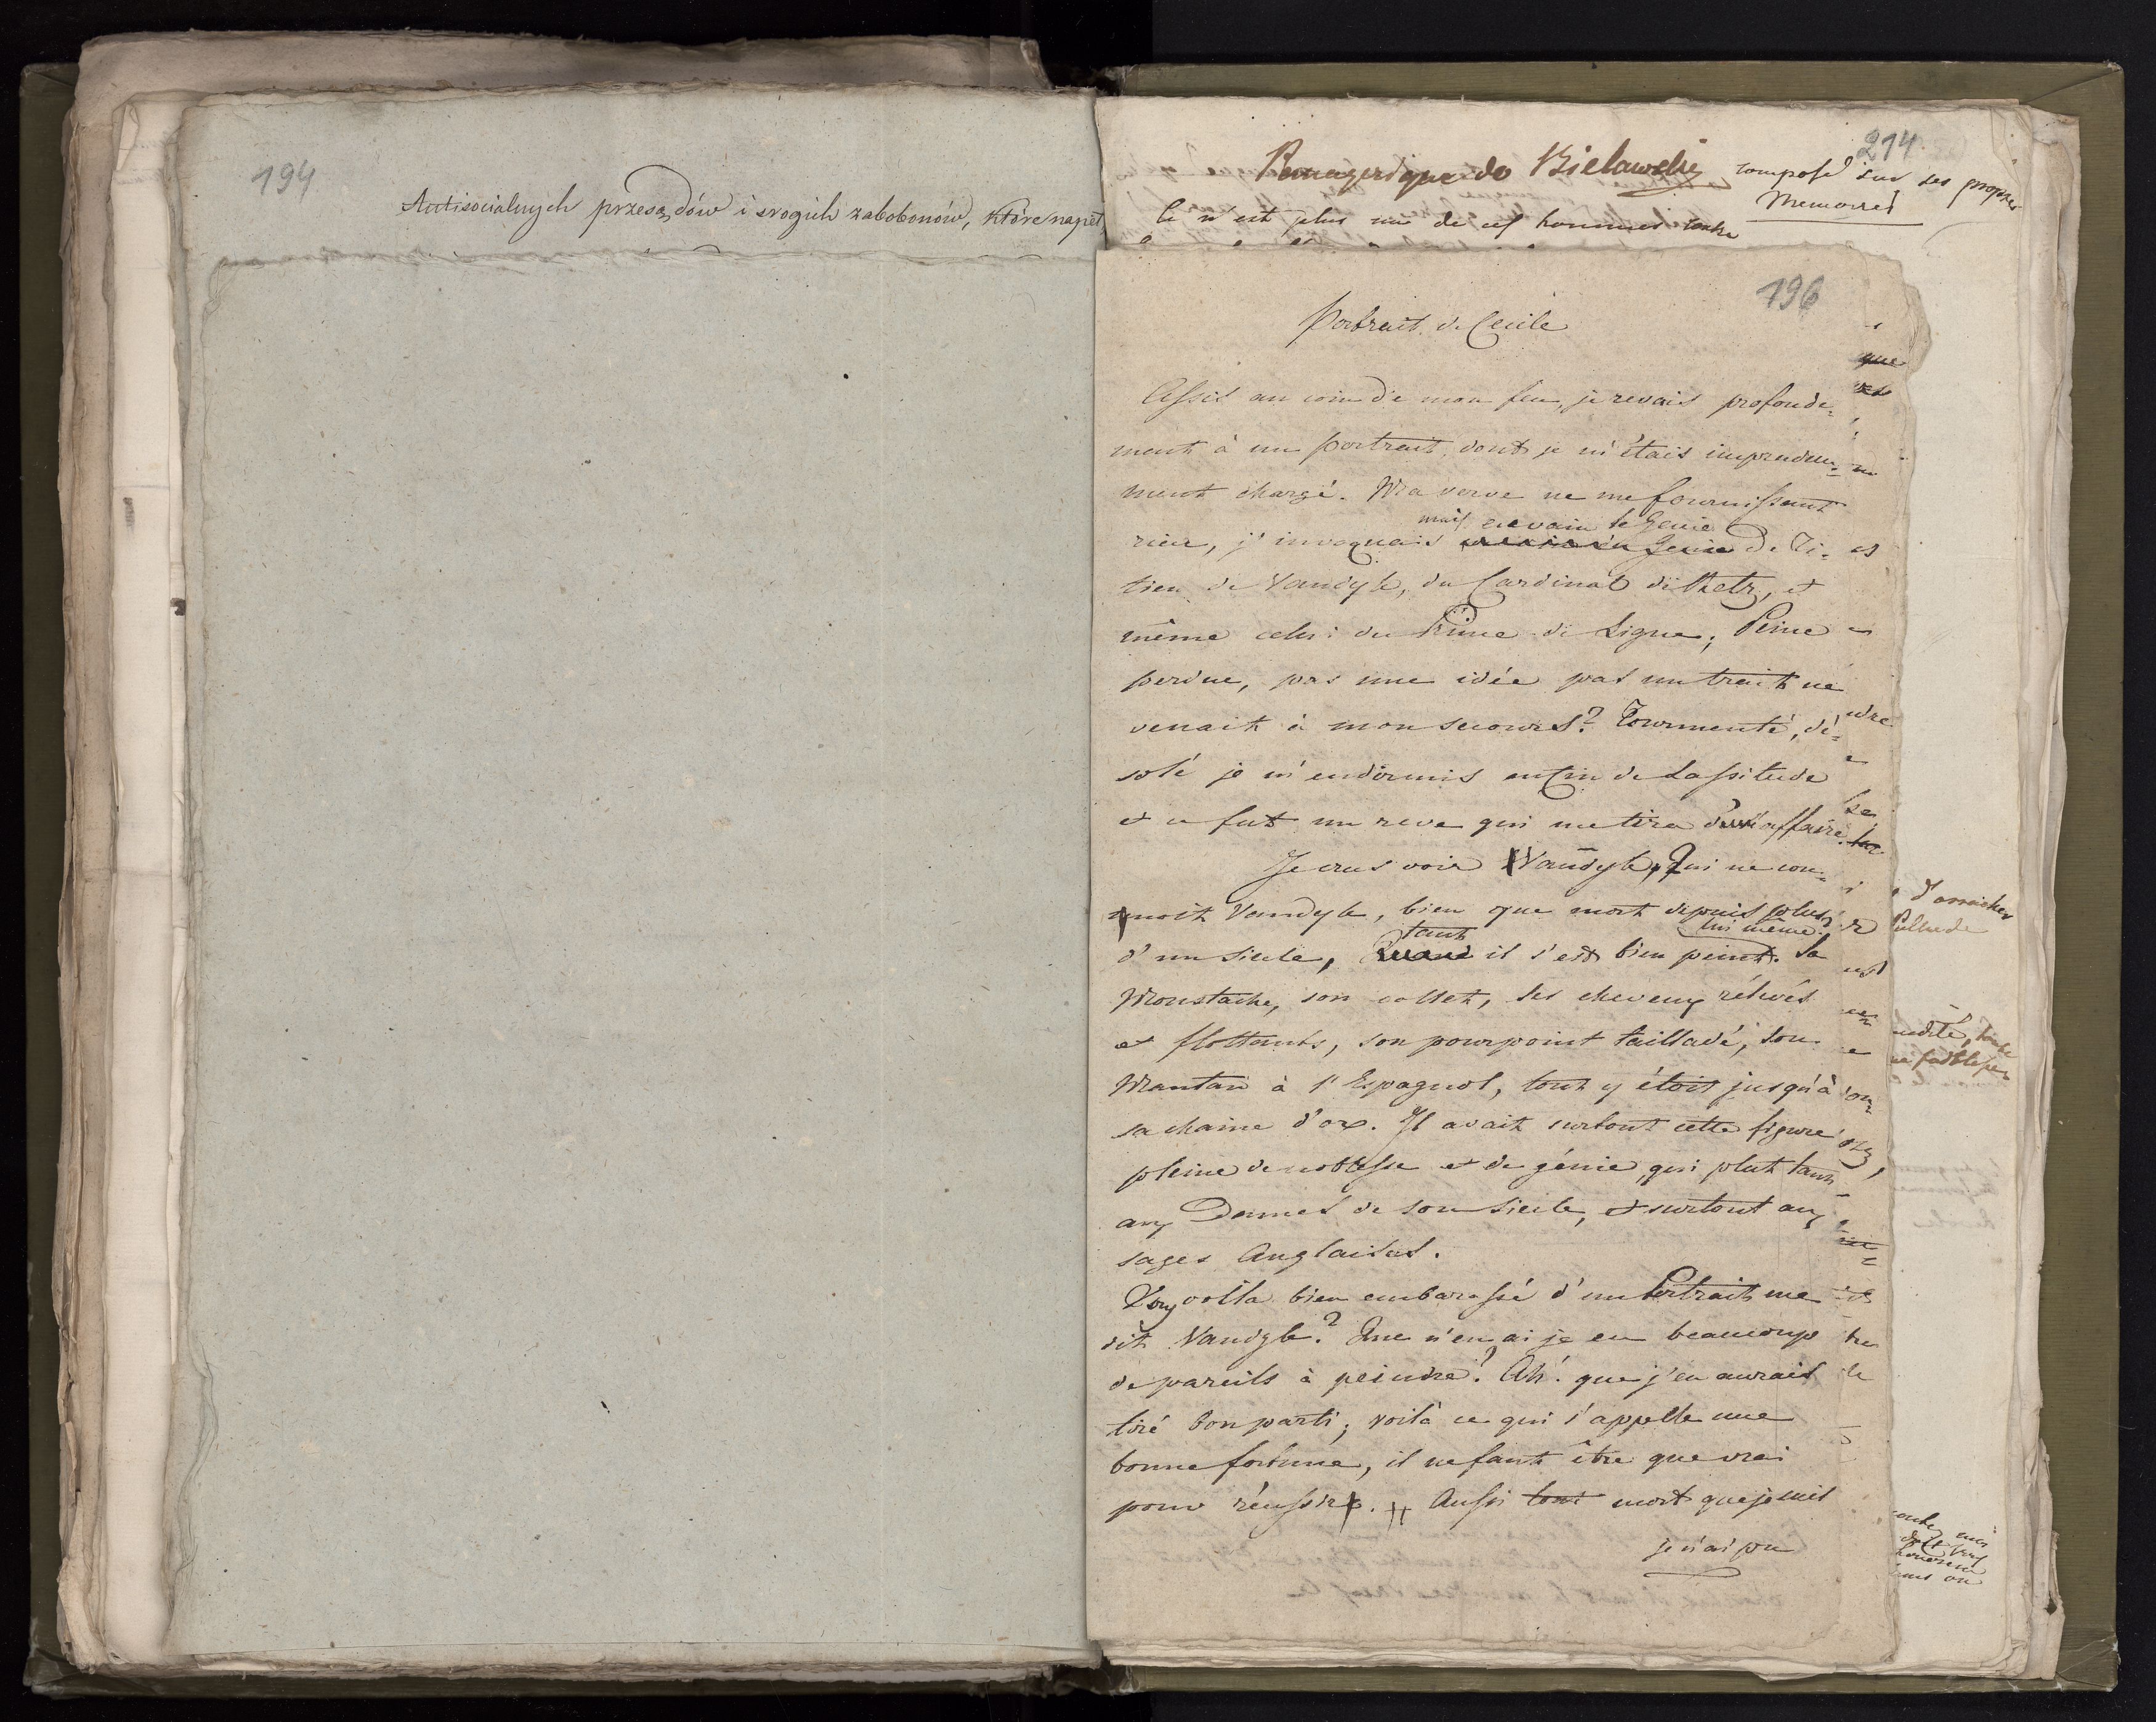 194
Antisocialnych przesądów i srogich zabobonów, które napeł
214.
de Bielawski composé sur ses propres
Memoires
Ce n'est plus un de ces hommes
196
Portrait de Cecile
Assis au coin de mon feu, je revais profonde=
ment à un portrait dont je m'étais imprudem=
ment chargé. Ma verve ne me fournissant
mais envain le Genie
rien, j'invoquais Genie de Ti=
tien de Vandyk, du Cardinal de Retz, et
même celui du Prince de Ligne; Peine
perdue, pas une idée pas un trait ne
venait à mon secours? Tourmenté, dé=
solé je m'endormis enfin de Lassitude
et ce fut un reve qui me tira d'affaire.
Je crus voir Vandyk, Qui ne con=
noit Vandyk, bien que mort depuis plus
tant lui même
d'un siecle, Quand il s'est bien peint. Sa
Moustache, son collet, ses cheveux rélevés
et flottants, son pourpoint taillade, son
Mantau à l'Espagnol, tout y étoit jusqu'à
sa chaine d'or. Il avait surtout cette figure
pleine de noblesse et de génie, qui plut tant
aux Dames de son siecle, et surtout aux
sages Anglaises.
Vous voilà bien embarassé d'un Portrait me
dit Vandyk? Que n'en ai je eu beaucoup
de pareils à peindre? Ah! que j'en aurais
tiré bon parti; voilà ce qui s'appelle une
bonne fortune, il ne faut être que vrai
pour réussir. Aussi tout mort que je suis
je n'ai pu
que
d'arracher